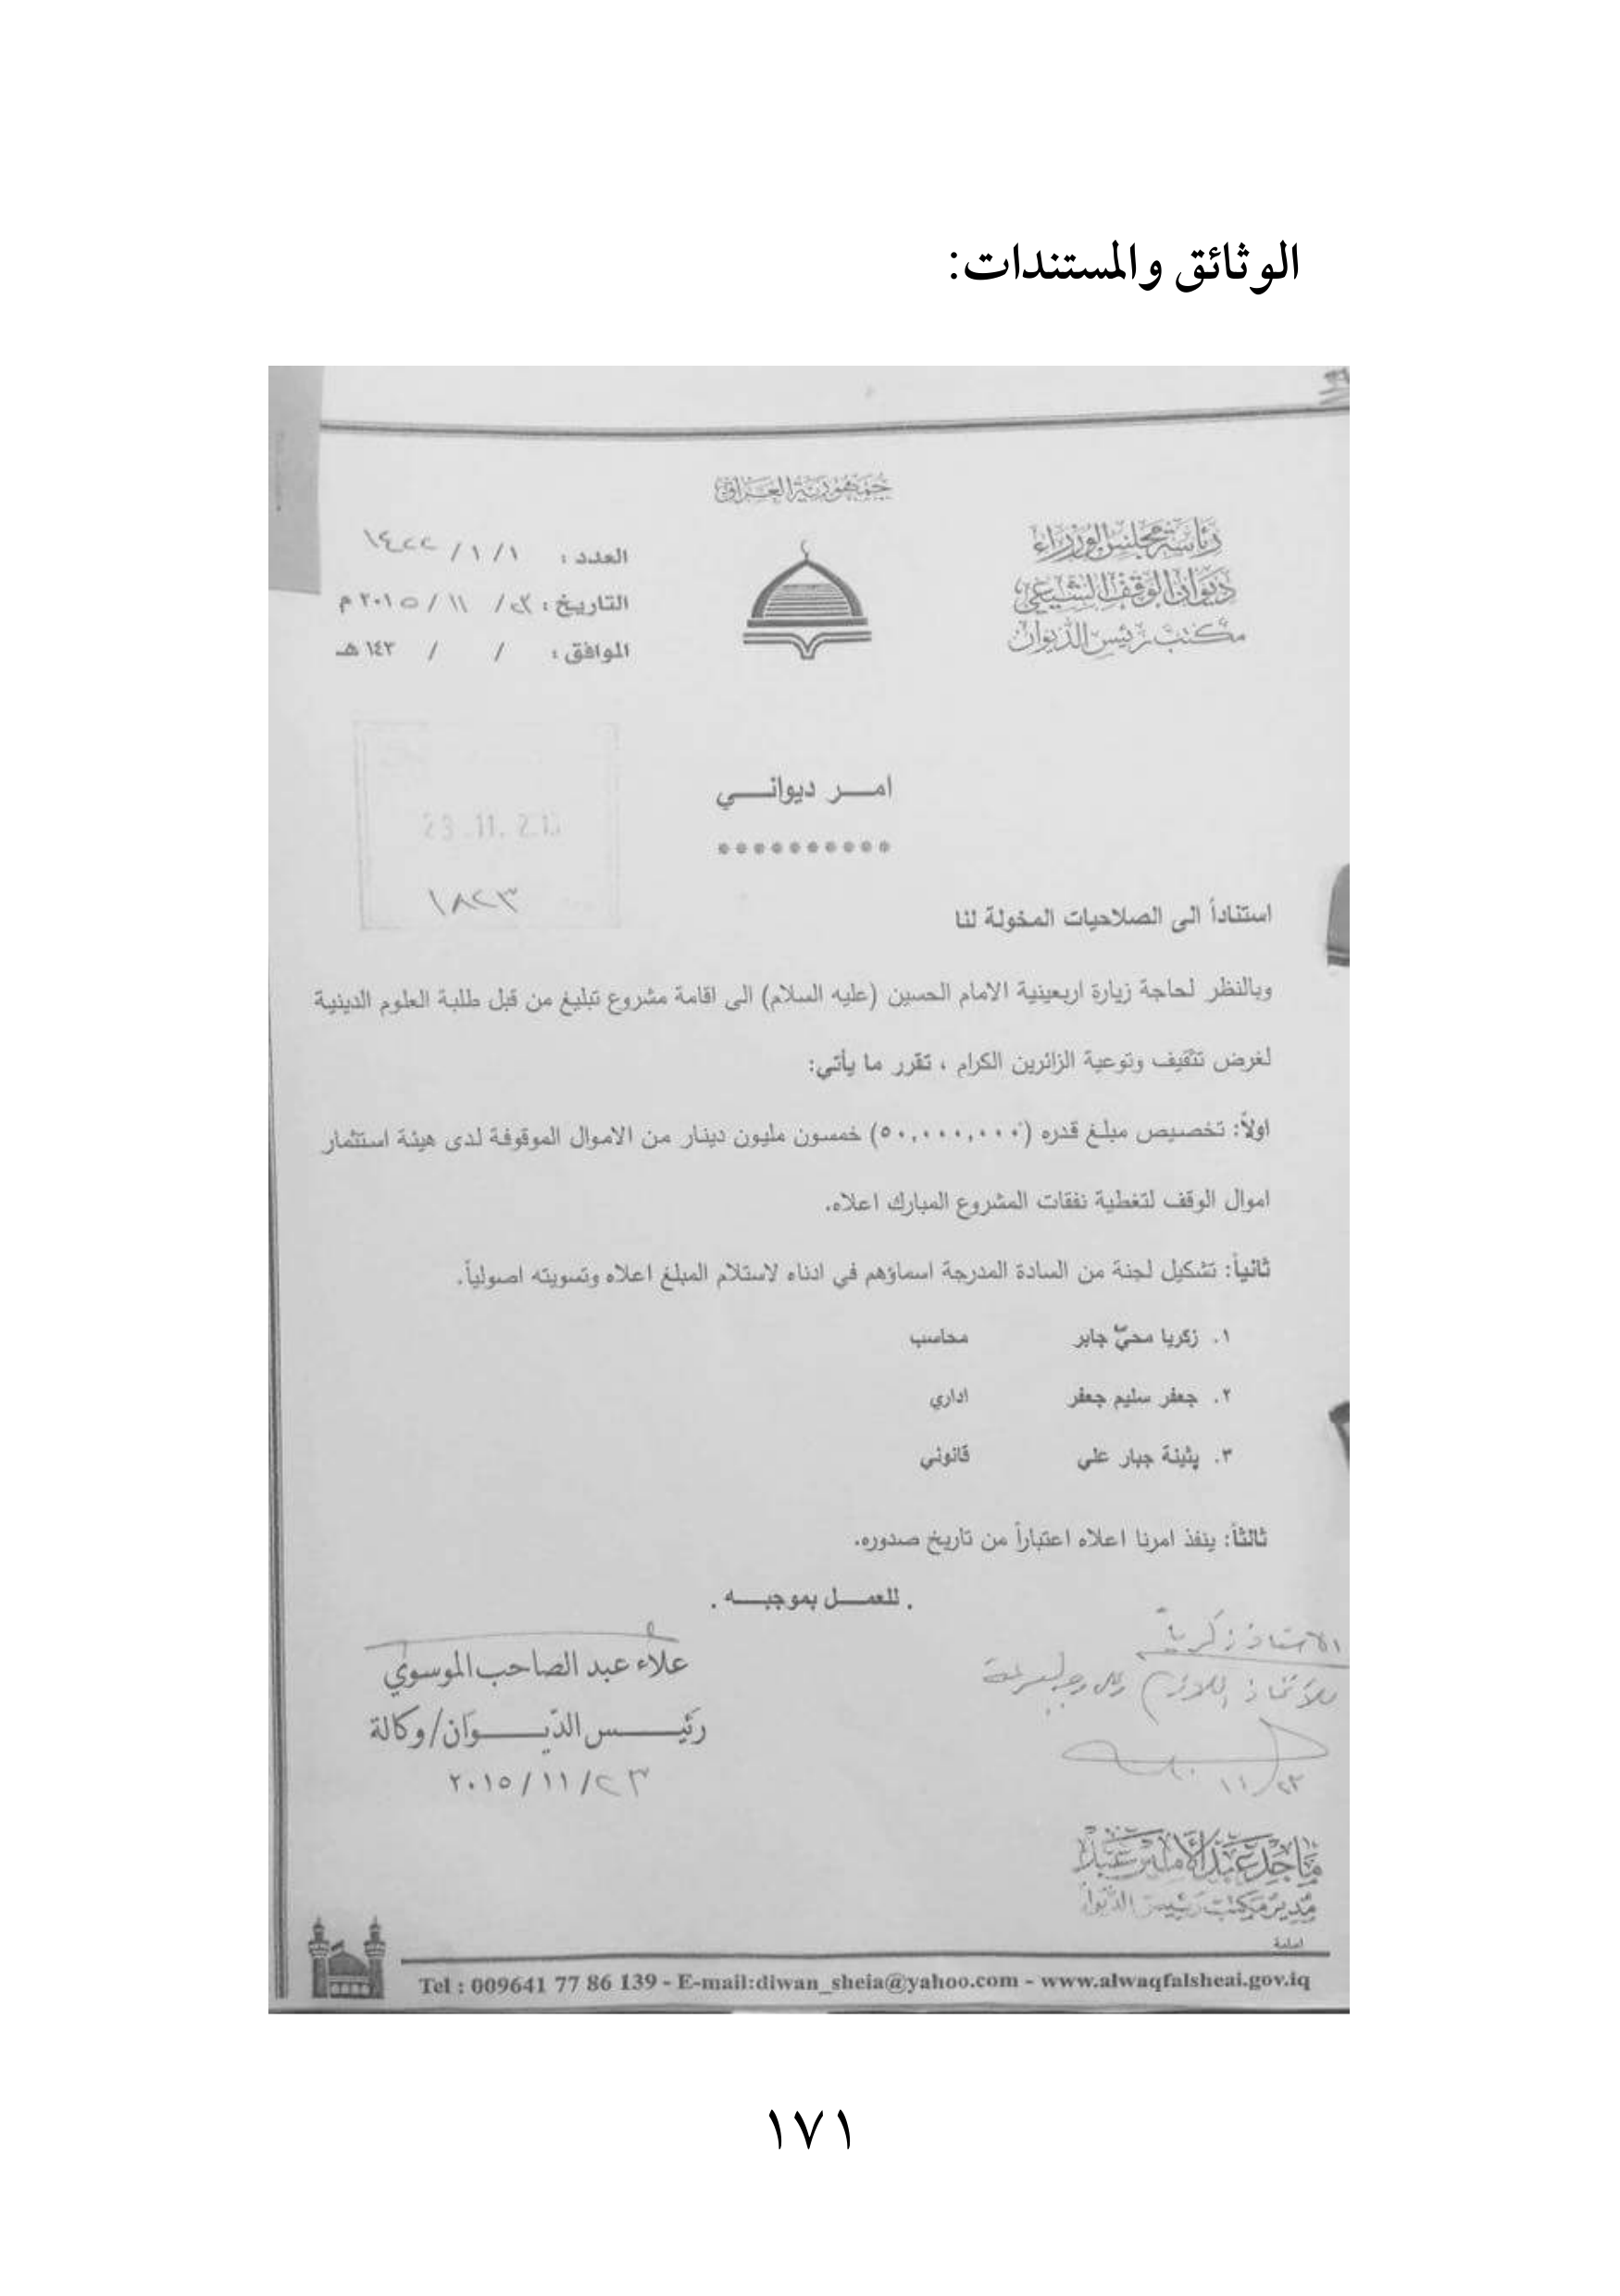 الوثائق والمستندات:
جمهورية العراق
رئاسة مجلس الوزراء
ديوان الوقف الشيعي
مكتب رئيس الديوان
العدد : ١ /١ /١٤٢٢
التاريخ : ٢٣/ ١١ /٢٠١٥ م
الموافق : / / ١٤٣ هـ
امـــر ديوانــــي
**********
١٨٢٣
استناداً الى الصلاحيات المخولة لنا
وبالنظر لحاجة زيارة اربعينية الامام الحسين (عليه السلام) الى اقامة مشروع تبليغ من قبل طلبة العلوم الدينية
لغرض تثقيف وتوعية الزائرين الكرام ، تقرر ما يأتي:
اولاً: تخصيص مبلغ قدره (٥٠,٠٠٠,٠٠٠) خمسون مليون دينار من الاموال الموقوفة لدى هيئة استثمار
اموال الوقف لتغطية نفقات المشروع المبارك اعلاه.
ثانياً: تشكيل لجنة من السادة المدرجة اسماؤهم في ادناه لاستلام المبلغ اعلاه وتسويته اصولياً.
١. زكريا محيّ جابر محاسب
٢. جعفر سليم جعفر اداري
٣. بثينة جبار علي قانوني
ثالثاً: ينفذ امرنا اعلاه اعتباراً من تاريخ صدوره.
. للعمـــل بموجبـــه .
علاء عبد الصاحب الموسوي
رئيـــــس الديـــــوان/وكالة
٢٠١٥/١١/٢٣
الاستاذ زكريا
للأتخاذ اللازم
١١/٢٣
ماجد عبد الأمير عبد
مدير مكتب رئيس الديوان
Tel : 009641 77 86 139 - E-mail:diwan_sheia@yahoo.com - www.alwaqfalsheai.gov.iq
١٧١